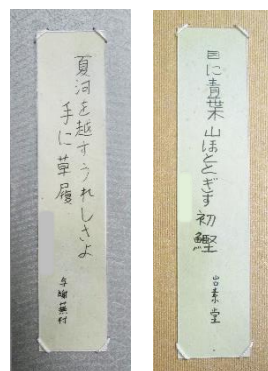 夏河を越すうれしさよ
手に草履
与謝蕪村
目に青葉山ほととぎす初鰹
山口素堂